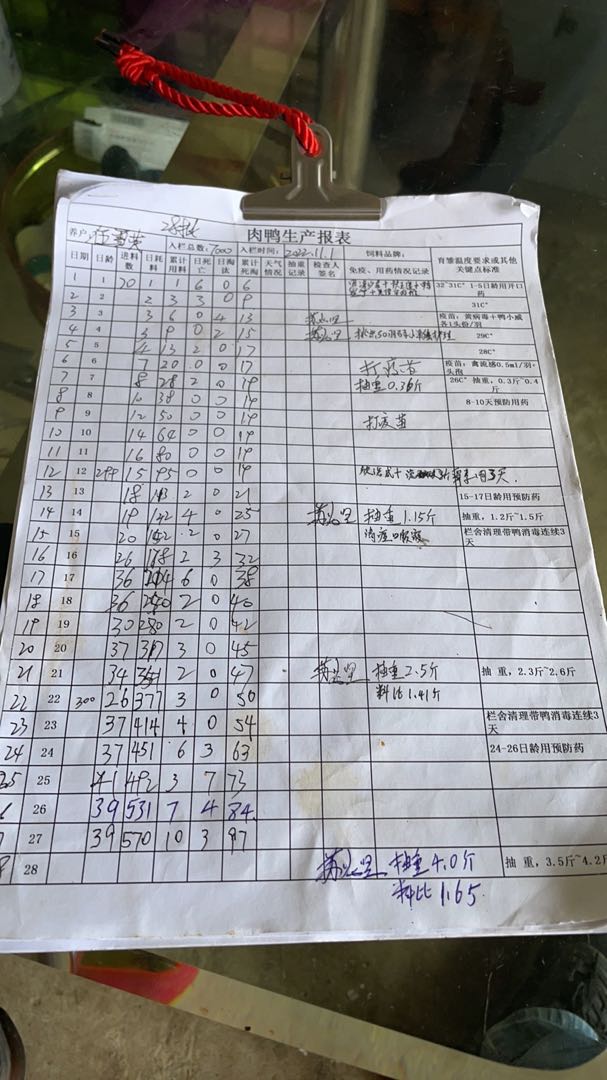 28批
肉鸭生产报表
养户: 入栏总数: 7000 入栏时间: 2022.11.1 饲料品牌: 育雏温度要求或其他关键点标准
日期 日龄 进料数 日耗料 累计用料 日死亡 日淘汰 累计死淘 天气情况 抽重记录 检查人签名 免疫、用药情况记录
1 1 20 1 1 6 0 6 32~31C° 1-5日龄用开口药
2 2 2 3 3 0 9 31C°
3 3 3 6 0 4 13 疫苗：黄病毒+鸭小威各1头份/羽
4 4 3 9 0 2 15 29C°
5 5 4 13 2 0 17 28C°
6 6 7 20 0 0 17 打疫苗 疫苗：禽流感0.5ml/羽·头孢
7 7 8 28 2 0 19 抽重0.36斤 26C° 抽重，0.3斤~0.4斤
8 8 10 38 0 0 19 8-10天预防用药
9 9 12 50 0 0 19 打疫苗
10 10 14 64 0 0 19
11 11 16 80 0 0 19
12 12 15 95 0 0 19
13 13 18 113 2 0 21 15-17日龄用预防药
14 14 19 132 4 0 25 抽重1.15斤 抽重，1.2斤~1.5斤
15 15 20 152 2 0 27 栏舍清理带鸭消毒连续3天
16 16 26 178 2 3 32
17 17 36 214 6 0 38
18 18 36 250 2 0 40
19 19 30 280 2 0 42
20 20 37 317 3 0 45
21 21 34 351 2 0 47 抽重2.5斤 抽重，2.3斤~2.6斤
22 22 300 26 377 3 0 50 料比1.41斤
23 23 37 414 4 0 54 栏舍清理带鸭消毒连续3天
24 24 37 451 6 3 63 24-26日龄用预防药
25 25 41 492 3 7 73
6 26 39 531 7 4 84
7 27 39 570 10 3 97
8 28 抽重4.0斤 抽重，3.5斤~4.2斤
料比1.65